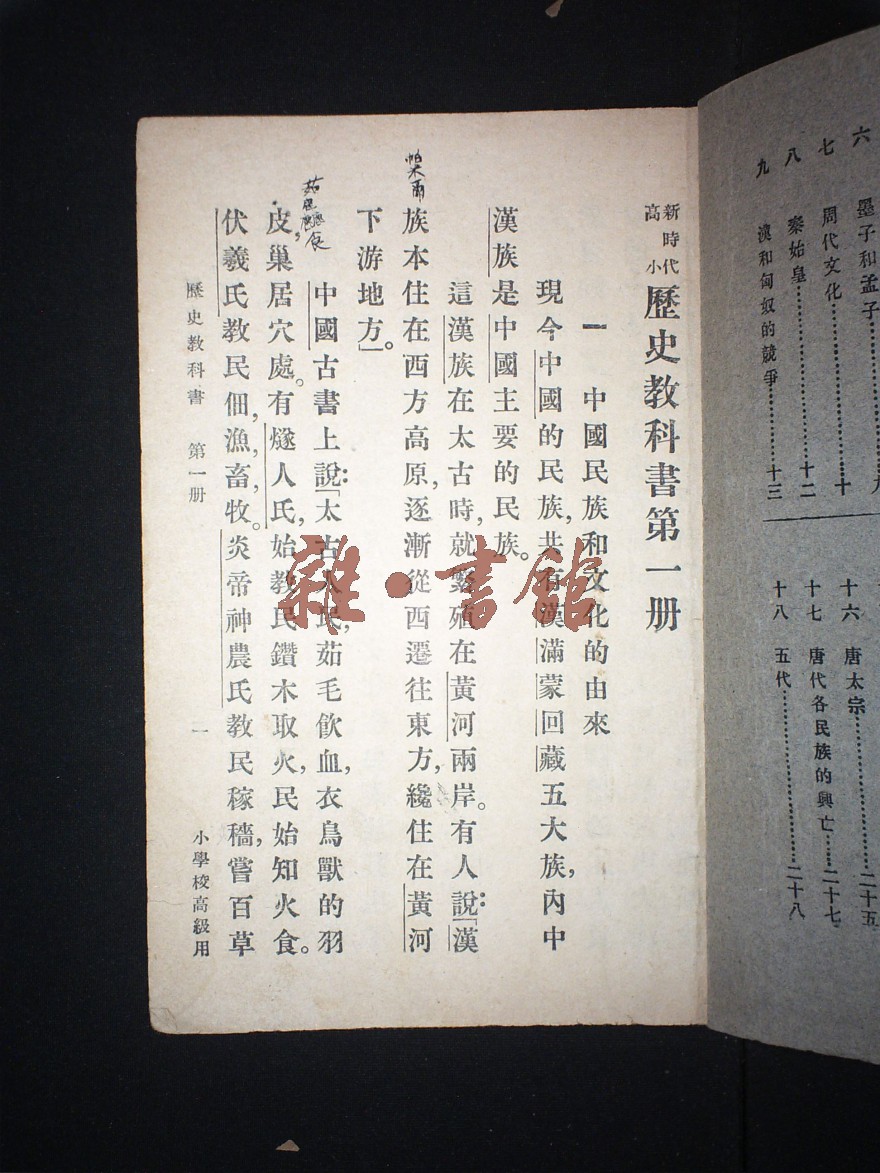 六 墨子和孟子
七 周代文化………十
八 秦始皇………十二
九 漢和匈奴的競爭………十三
十六 唐太宗………二十五
十七 唐代各民族的興亡……二十七
十八 五代………二十八
新時代高小歷史教科書第一册
一 中國民族和文化的由來
現今中國的民族,共有漢滿蒙回藏五大族,內中
漢族是中國主要的民族。
這漢族在太古時,就繁殖在黃河兩岸。有人說:「漢
族本住在西方高原,逐漸從西遷往東方,纔住在黃河
下游地方」。
中國古書上說:「太古人民,茹毛飲血,衣鳥獸的羽
皮,巢居穴處。有燧人氏,始教民鑽木取火,民始知火食。
伏羲氏教民佃,漁,畜,牧。炎帝神農氏教民稼穡,嘗百草
歷史教科書 第一册 一 小學校高級用
雜·書館